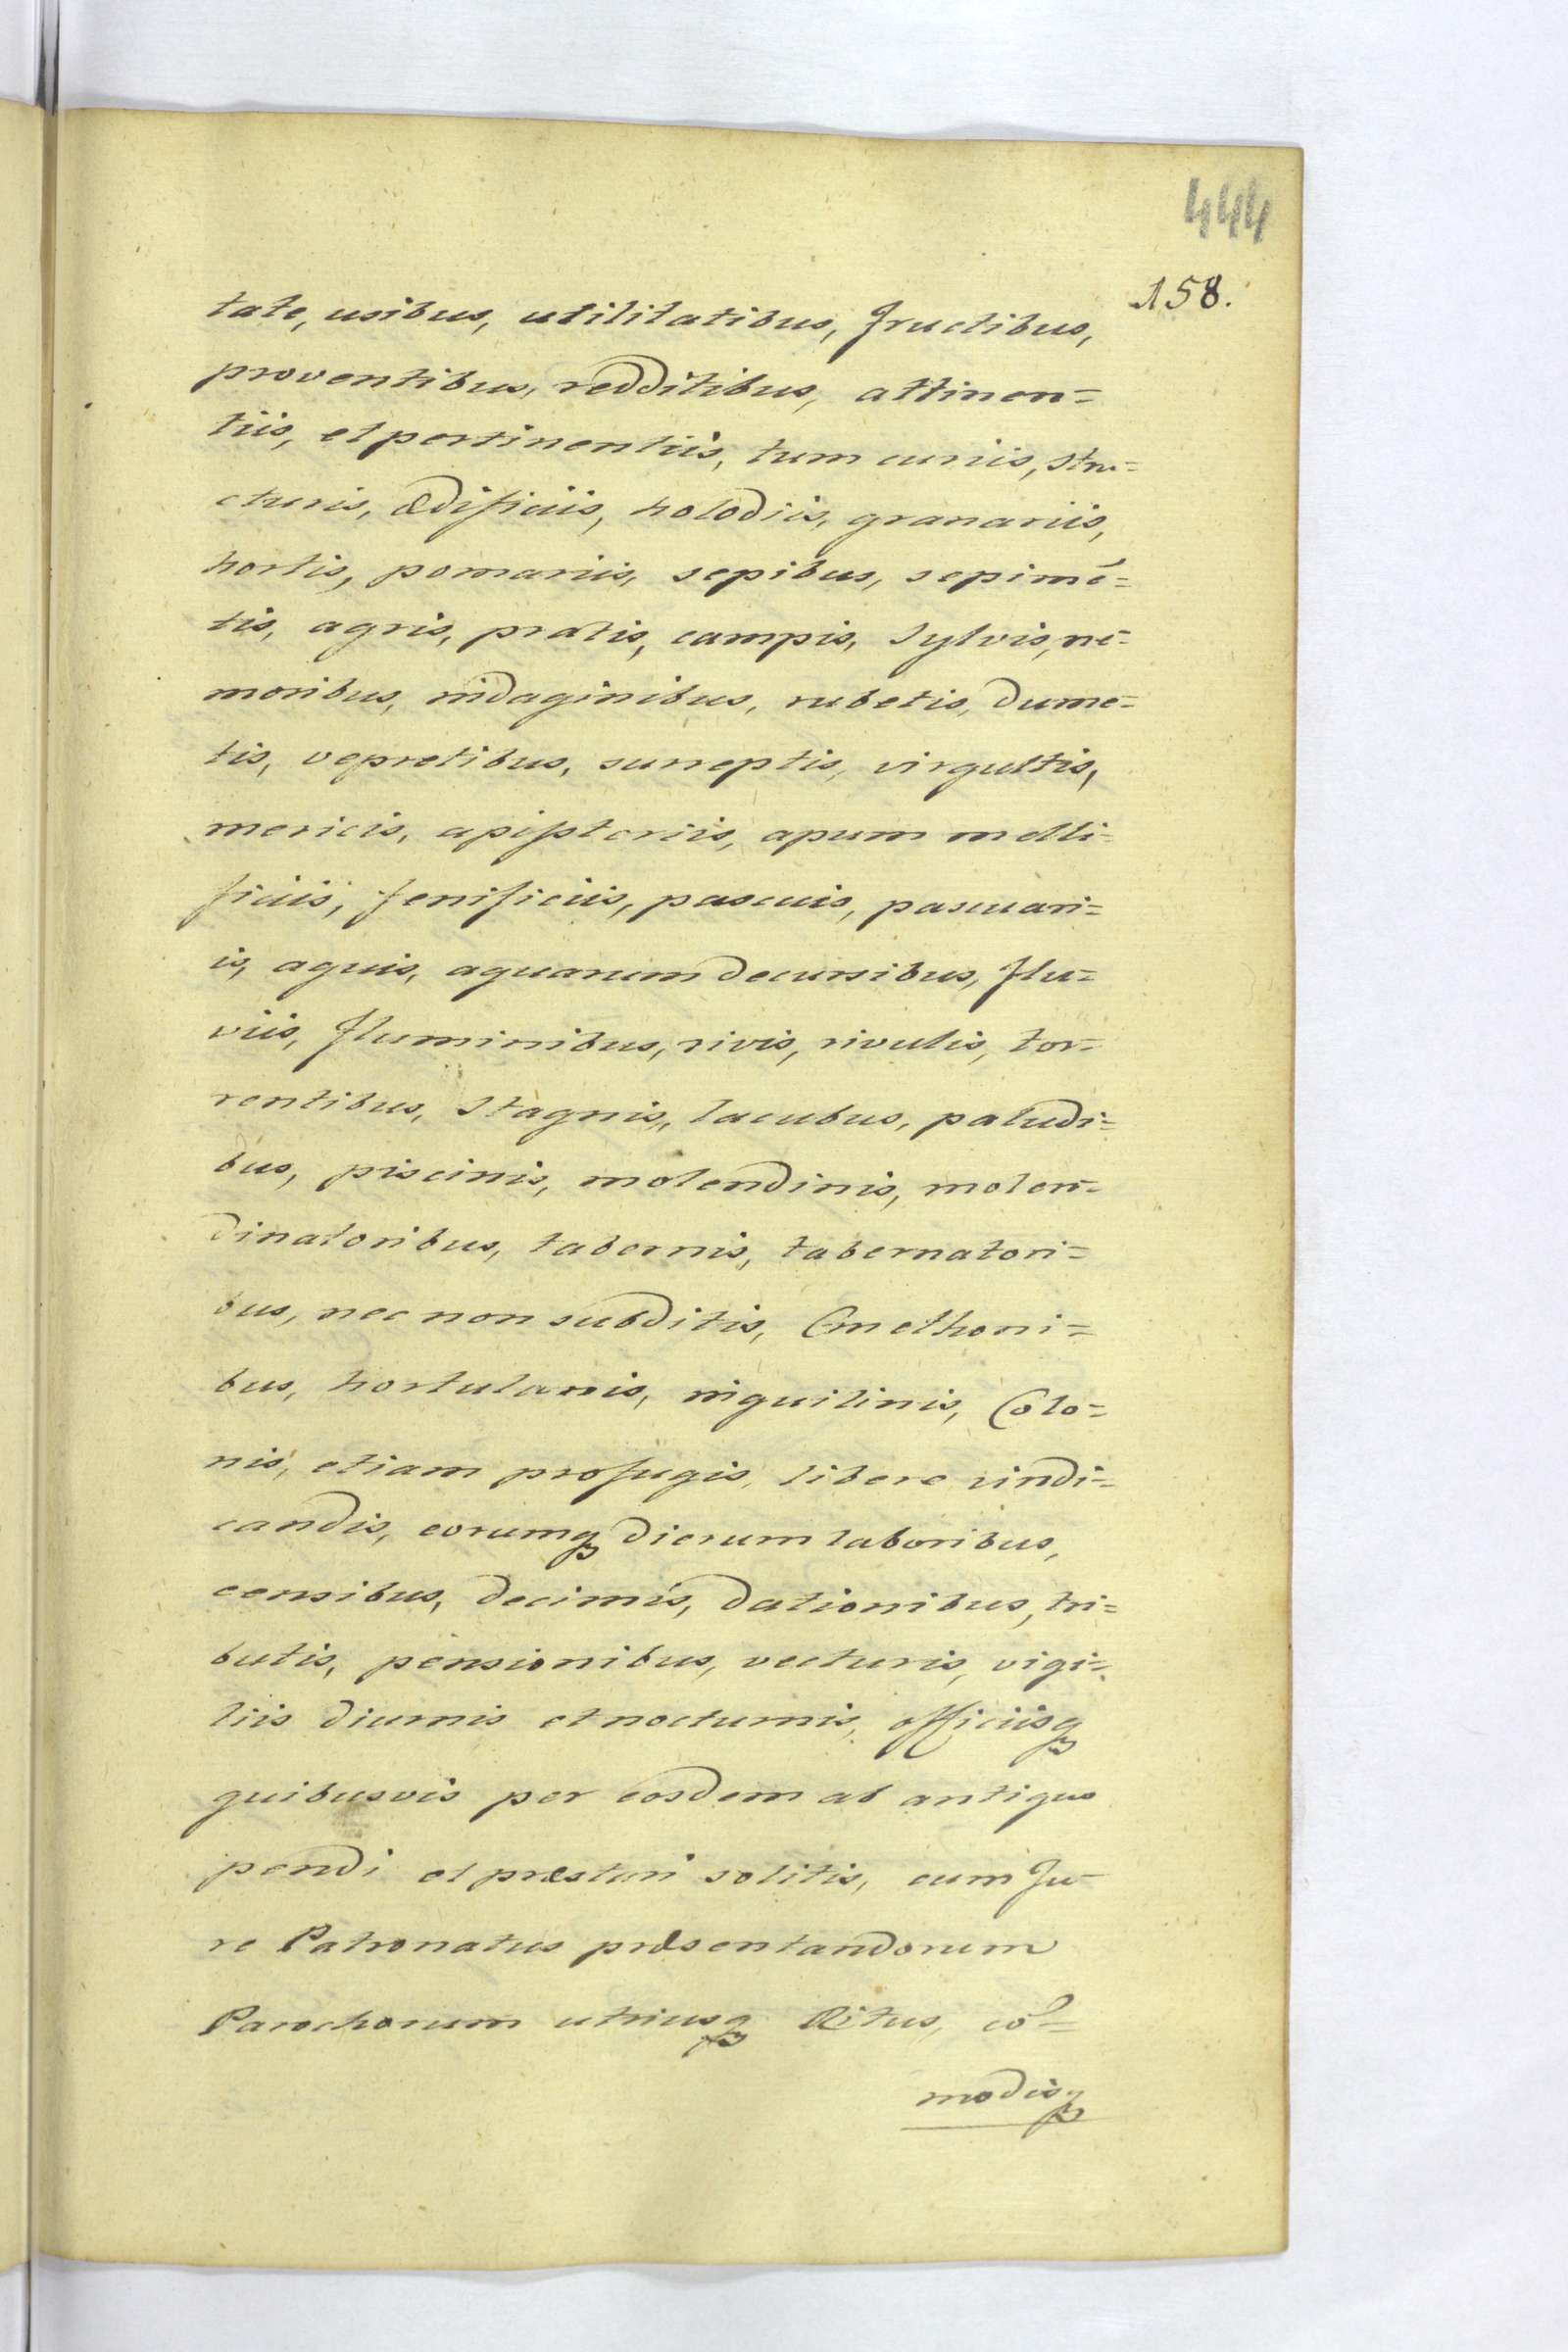 444
158.
tate, usibus, utilitatibus, fructibus,
proventibus, redditibus, attinen=
tiis, et pertinentiis, tum curiis, stru=
cturis, ædificiis, holodiis, granariis,
hortis, pomariis, sepibus, sepimē=
tis, agris, pratis, campis, Sylvis, ne=
moribus, indaginibus, rubetis, dume=
tis, vepretibus, surreptis, virgultis,
mericis, apistoriis, apum melli=
ficiis, fenificiis, pascuis, pascuari=
is, aquis, aquarum decursibus, flu=
viis, fluminibus, rivis, rivulis, tor=
rentibus, Stagnis, lacubus, paludi=
bus, piscinis, molendinis, molen=
dinatoribus, tabernis, tabernatori=
bus, nec non subditis, Cmethoni=
bus, hortulanis, inquilinis, Colo=
nis, etiam profugis, libere vindi=
candis, eorumq dierum laboribus,
censibus, decimis, dationibus, tri=
butis, pensionibus, vecturis, vigi=
liis diurnis et nocturnis, officiisq
quibusvis per eosdem ab antiquo
pendi et præstari solitis, cum Ju=
re Patronatus præsentandorum
Parochorum utriusq Ritus, cō=
modisq